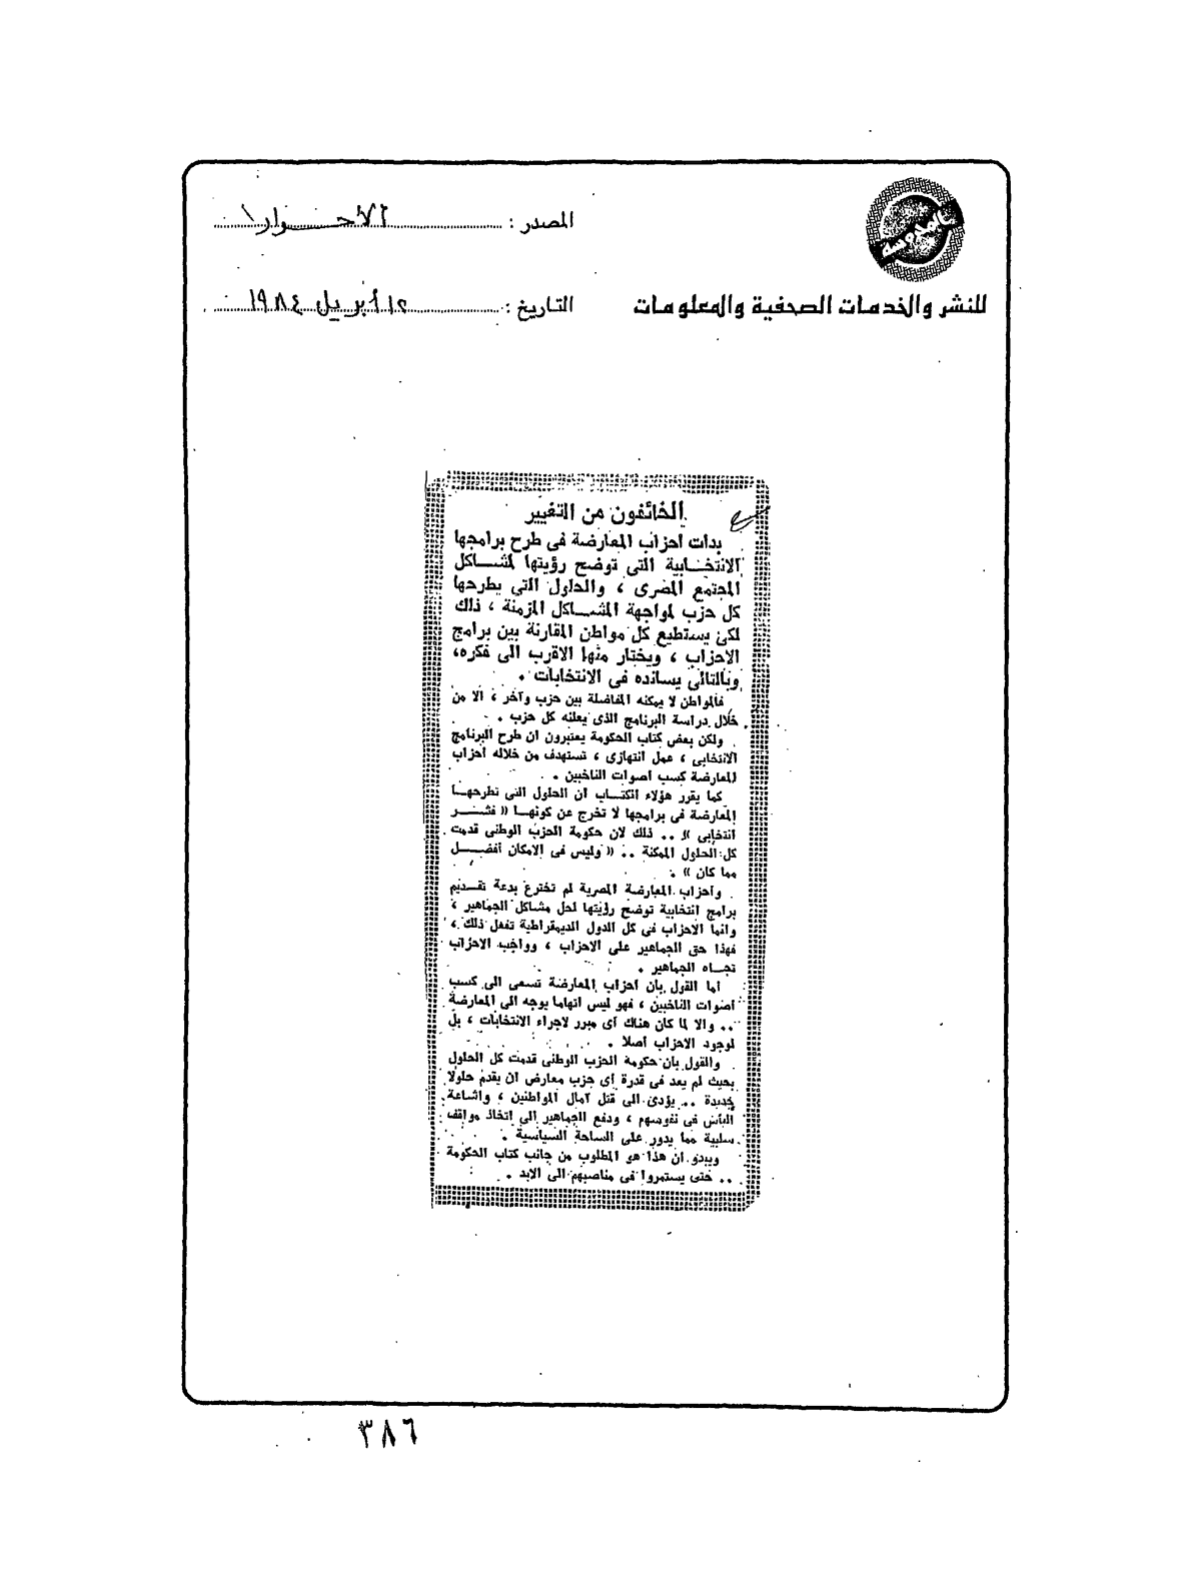 المصدر : الأحرار
للنشر والخدمات الصحفية والمعلومات
التاريخ : ١٢ أبريل ١٩٨٤
الخائفون من التغيير
بدات احزاب المعارضة فى طرح برامجها
الانتخـابية التى توضح رؤيتها لمشـاكل
المجتمع المصرى ، والحلول التى يطرحها
كل حزب لمواجهة المشـاكل المزمنة ، ذلك
لكى يستطيع كل مواطن المقارنة بين برامج
الاحزاب ، ويختار منها الاقرب الى فكره،
وبالتالى يسانده فى الانتخابات .
فالمواطن لا يمكنه المفاضلة بين حزب وآخر ، الا من
خلال دراسة البرنامج الذى يعلنه كل حزب .
ولكن بعض كتاب الحكومة يعتبرون ان طرح البرنامج
الانتخابى ، عمل انتهازى ، تستهدف من خلاله احزاب
المعارضة كسب اصوات الناخبين .
كما يقرر هؤلاء الكتـاب ان الحلول التى تطرحهـا
المعارضة فى برامجها لا تخرج عن كونهـا « فشـر
انتخابى » .. ذلك لان حكومة الحزب الوطنى قدمت
كل الحلول الممكنة .. « وليس فى الامكان أفضـل
مما كان » .
واحزاب المعارضة المصرية لم تخترع بدعة تقـديم
برامج انتخابية توضح رؤيتها لحل مشاكل الجماهير ،
وانما الاحزاب فى كل الدول الديمقراطية تفعل ذلك ،
فهذا حق الجماهير على الاحزاب ، وواجب الاحزاب
تجـاه الجماهير .
اما القول بان احزاب المعارضة تسعى الى كسب
اصوات الناخبين ، فهو ليس اتهاما يوجه الى المعارضة
.. والا لما كان هناك أى مبرر لاجراء الانتخابات ، بل
لوجود الاحزاب أصلا .
والقول بان حكومة الحزب الوطنى قدمت كل الحلول
بحيث لم يعد فى قدرة أى حزب معارض ان يقدم حلولا
جديدة .. يؤدى الى قتل آمال المواطنين ، واشاعة
اليأس فى نفوسهم ، ودفع الجماهير الى إتخاذ مواقف
سلبية مما يدور على الساحة السياسية .
ويبدو ان هذا هو المطلوب من جانب كتاب الحكومة
.. حتى يستمروا فى مناصبهم الى الابد .
٣٨٦